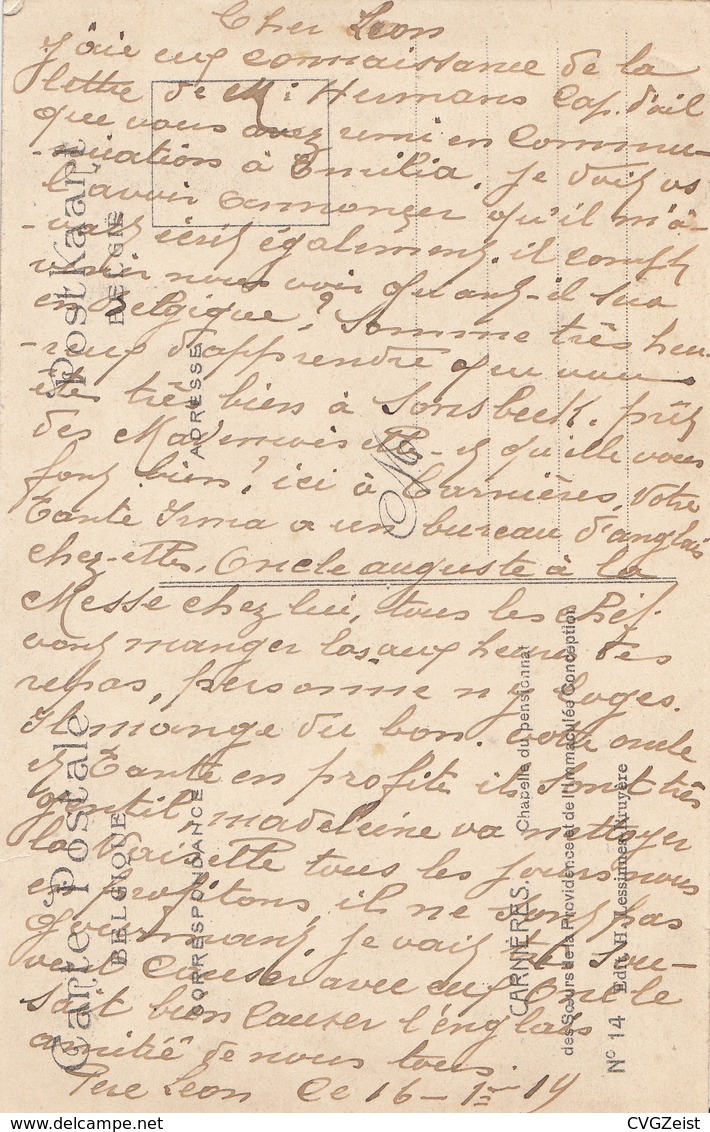 Cher Leon
J'aie eus connaissance de la
lettre de Mr Hermans Cap. d'ail
que vous avez remi en Commu-
-niication à Emilia. Je doit vs
l'avoir annonçer qu'il m'a-
-vait écrit également, il compt
venir nous voir quant-il sera
en Belgique? Somme très heu-
-reux d'apprendre que vous
êtes très bien à Sonsbeck. prêt
des et qu'elle vous
font bien? ici à Carnières, votre
Tante Irma a un bureau d'anglais
chez-elles. Oncle auguste à la
Messe chez lui, tous les chef
vont manger las aux heures des
repas, personne n'y loges.
Il mange du bon. votre oncle
et Tante en profite ils sont très
gentil, madeleine va nettoyer
la vaiselle tous les jours nous
en profitons, il ne sont pas
gourmant, je vait te
causer avec eux Oncle
sait bien Causer l'englais
amitié de nous tous.
Père Leon Ce 16-1-19
Postkaart
BELGIË
ADRESSE
M
Carte Postale
BELGIQUE
CORRESPONDANCE
CARNIÈRES. Chapelle du pensionnat
des Sœurs de la Providence et de l'Immaculée Conception
N° 14 Edit. H. Lessinnes-Bruyère
CVGZeist